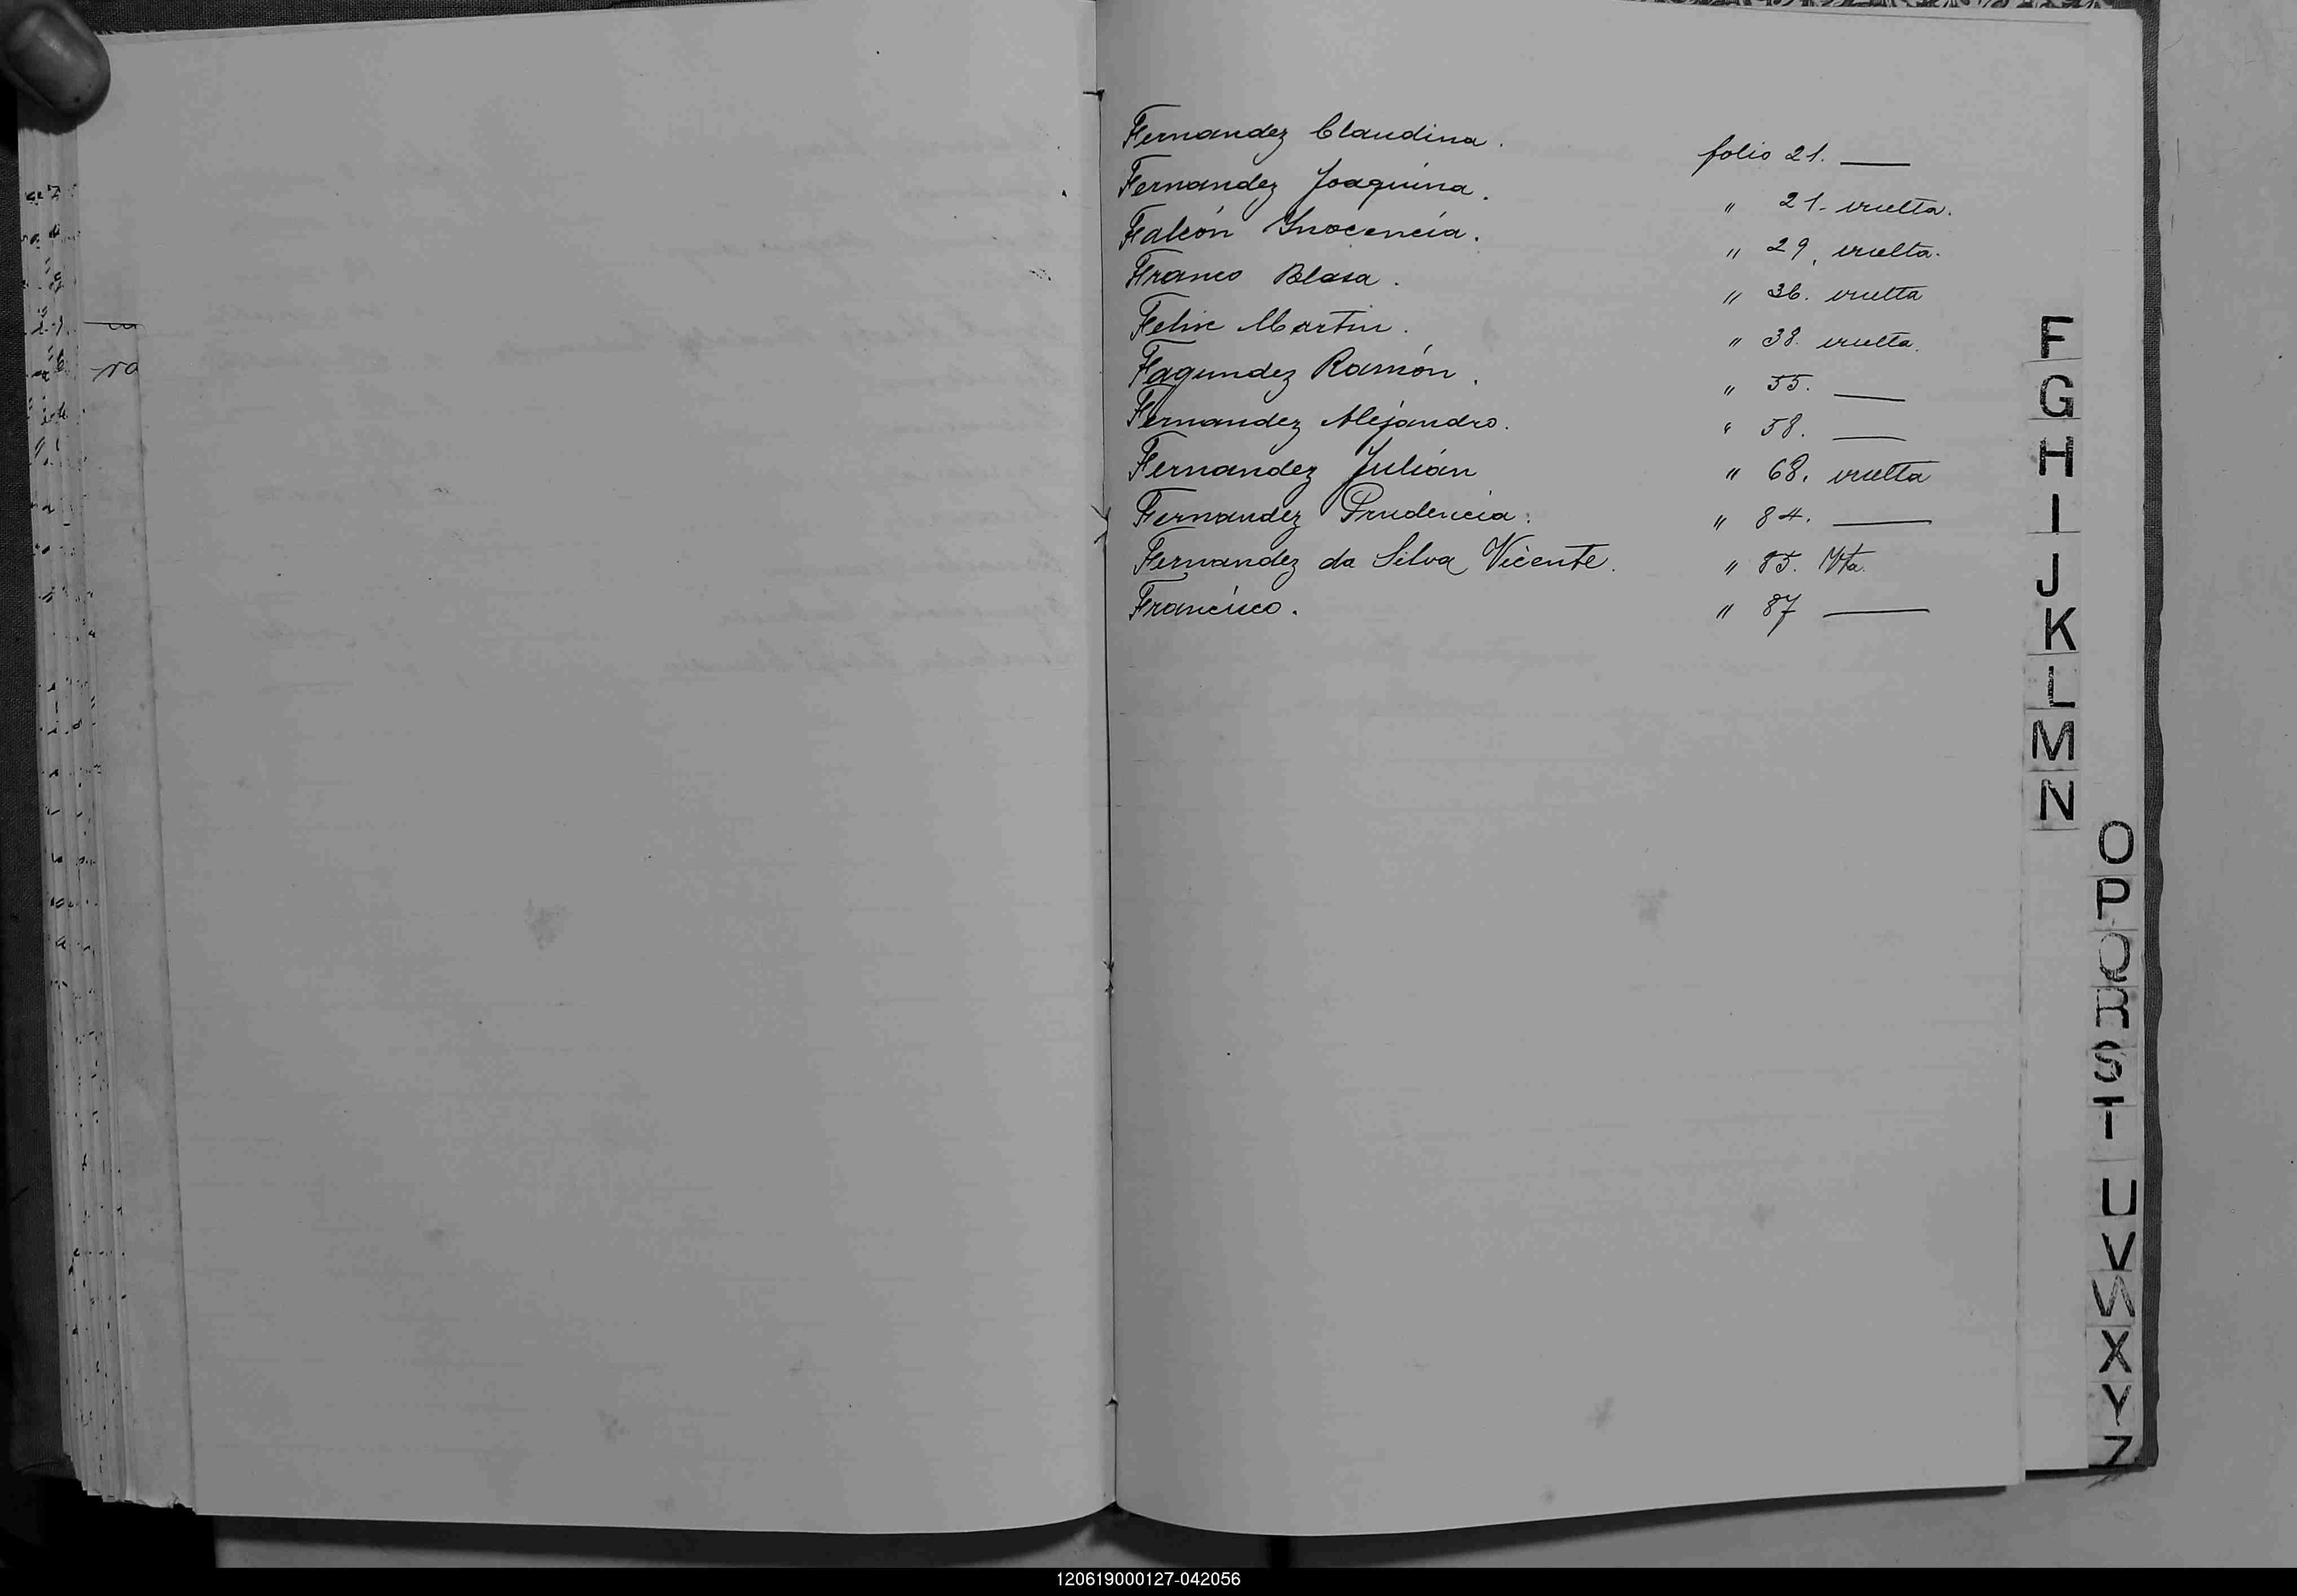 Fernandez Claudina. folio 21. —
Fernandez Joaquina. " 21. vuelta.
Falcón Inocencia. " 29. vuelta.
Franco Blasa. " 36. vuelta
Felix Martin. " 38. vuelta.
Fagundez Ramón. " 55. —
Fernandez Alejandro. " 58. —
Fernandez Julián " 68. vuelta
Fernandez Prudencia. " 84. —
Fernandez da Silva Vicente. " 85. Vta.
Francisco. " 87 —
F
G
H
I
J
K
L
M
N
O
P
Q
R
S
T
U
V
W
X
Y
Z
120619000127-042056